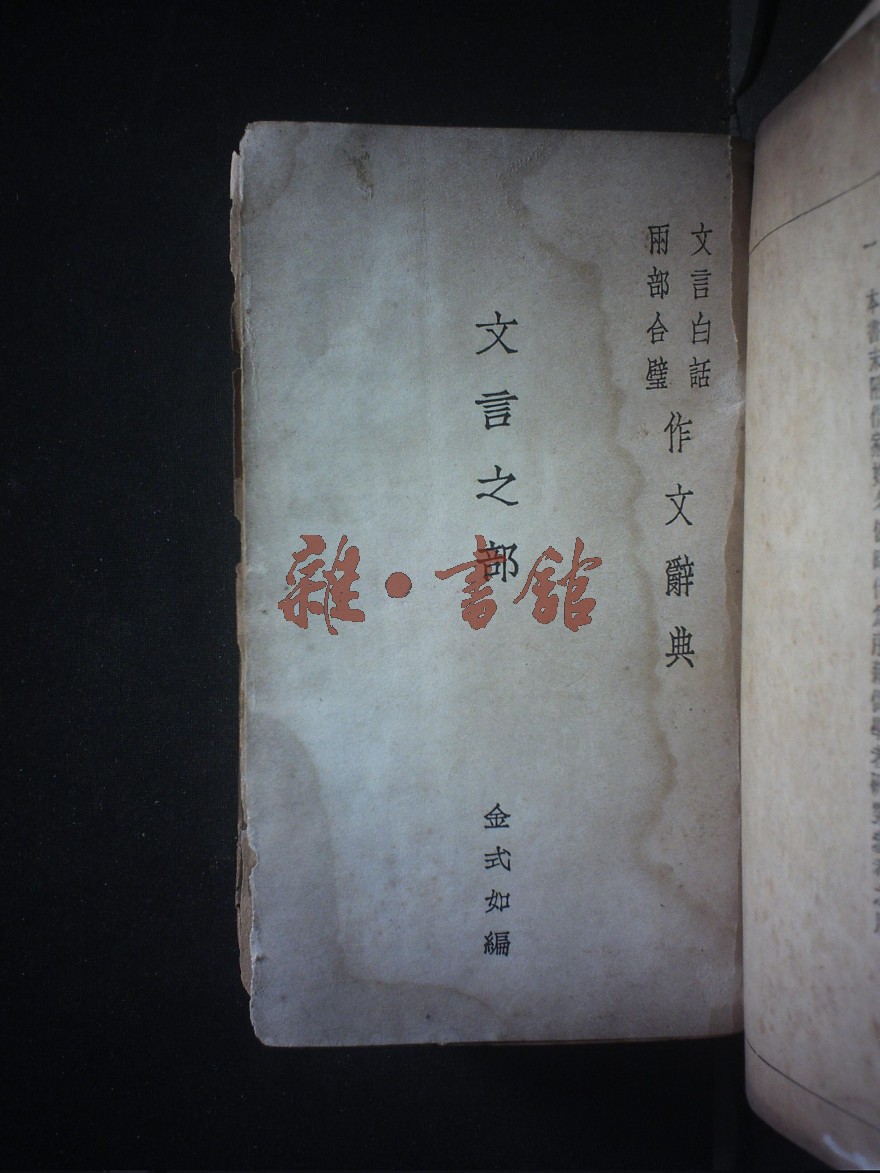 文言白話
兩部合璧
作文辭典
文言之部
金式如編
雜·書館
一